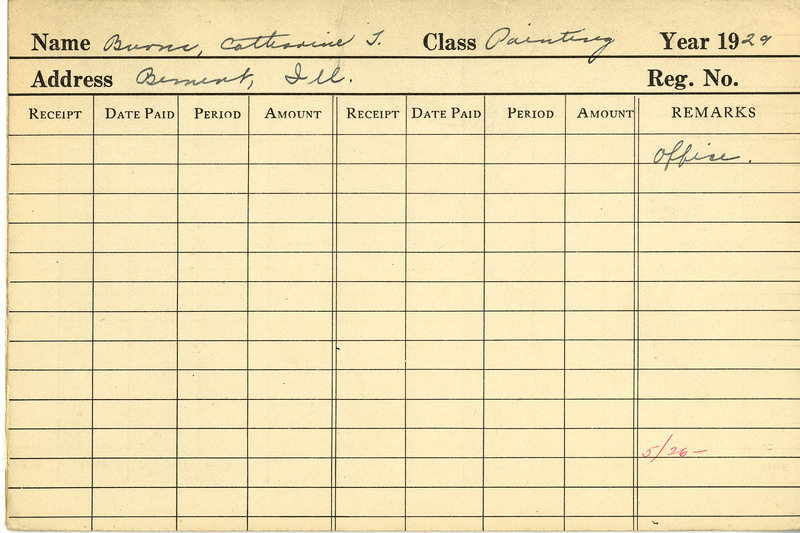 Name Burns, Catharine T. Class Painting Year 1929
Address Bement, Ill. Reg. No.
RECEIPT DATE PAID PERIOD AMOUNT RECEIPT DATE PAID PERIOD AMOUNT REMARKS
Office.
5/26-